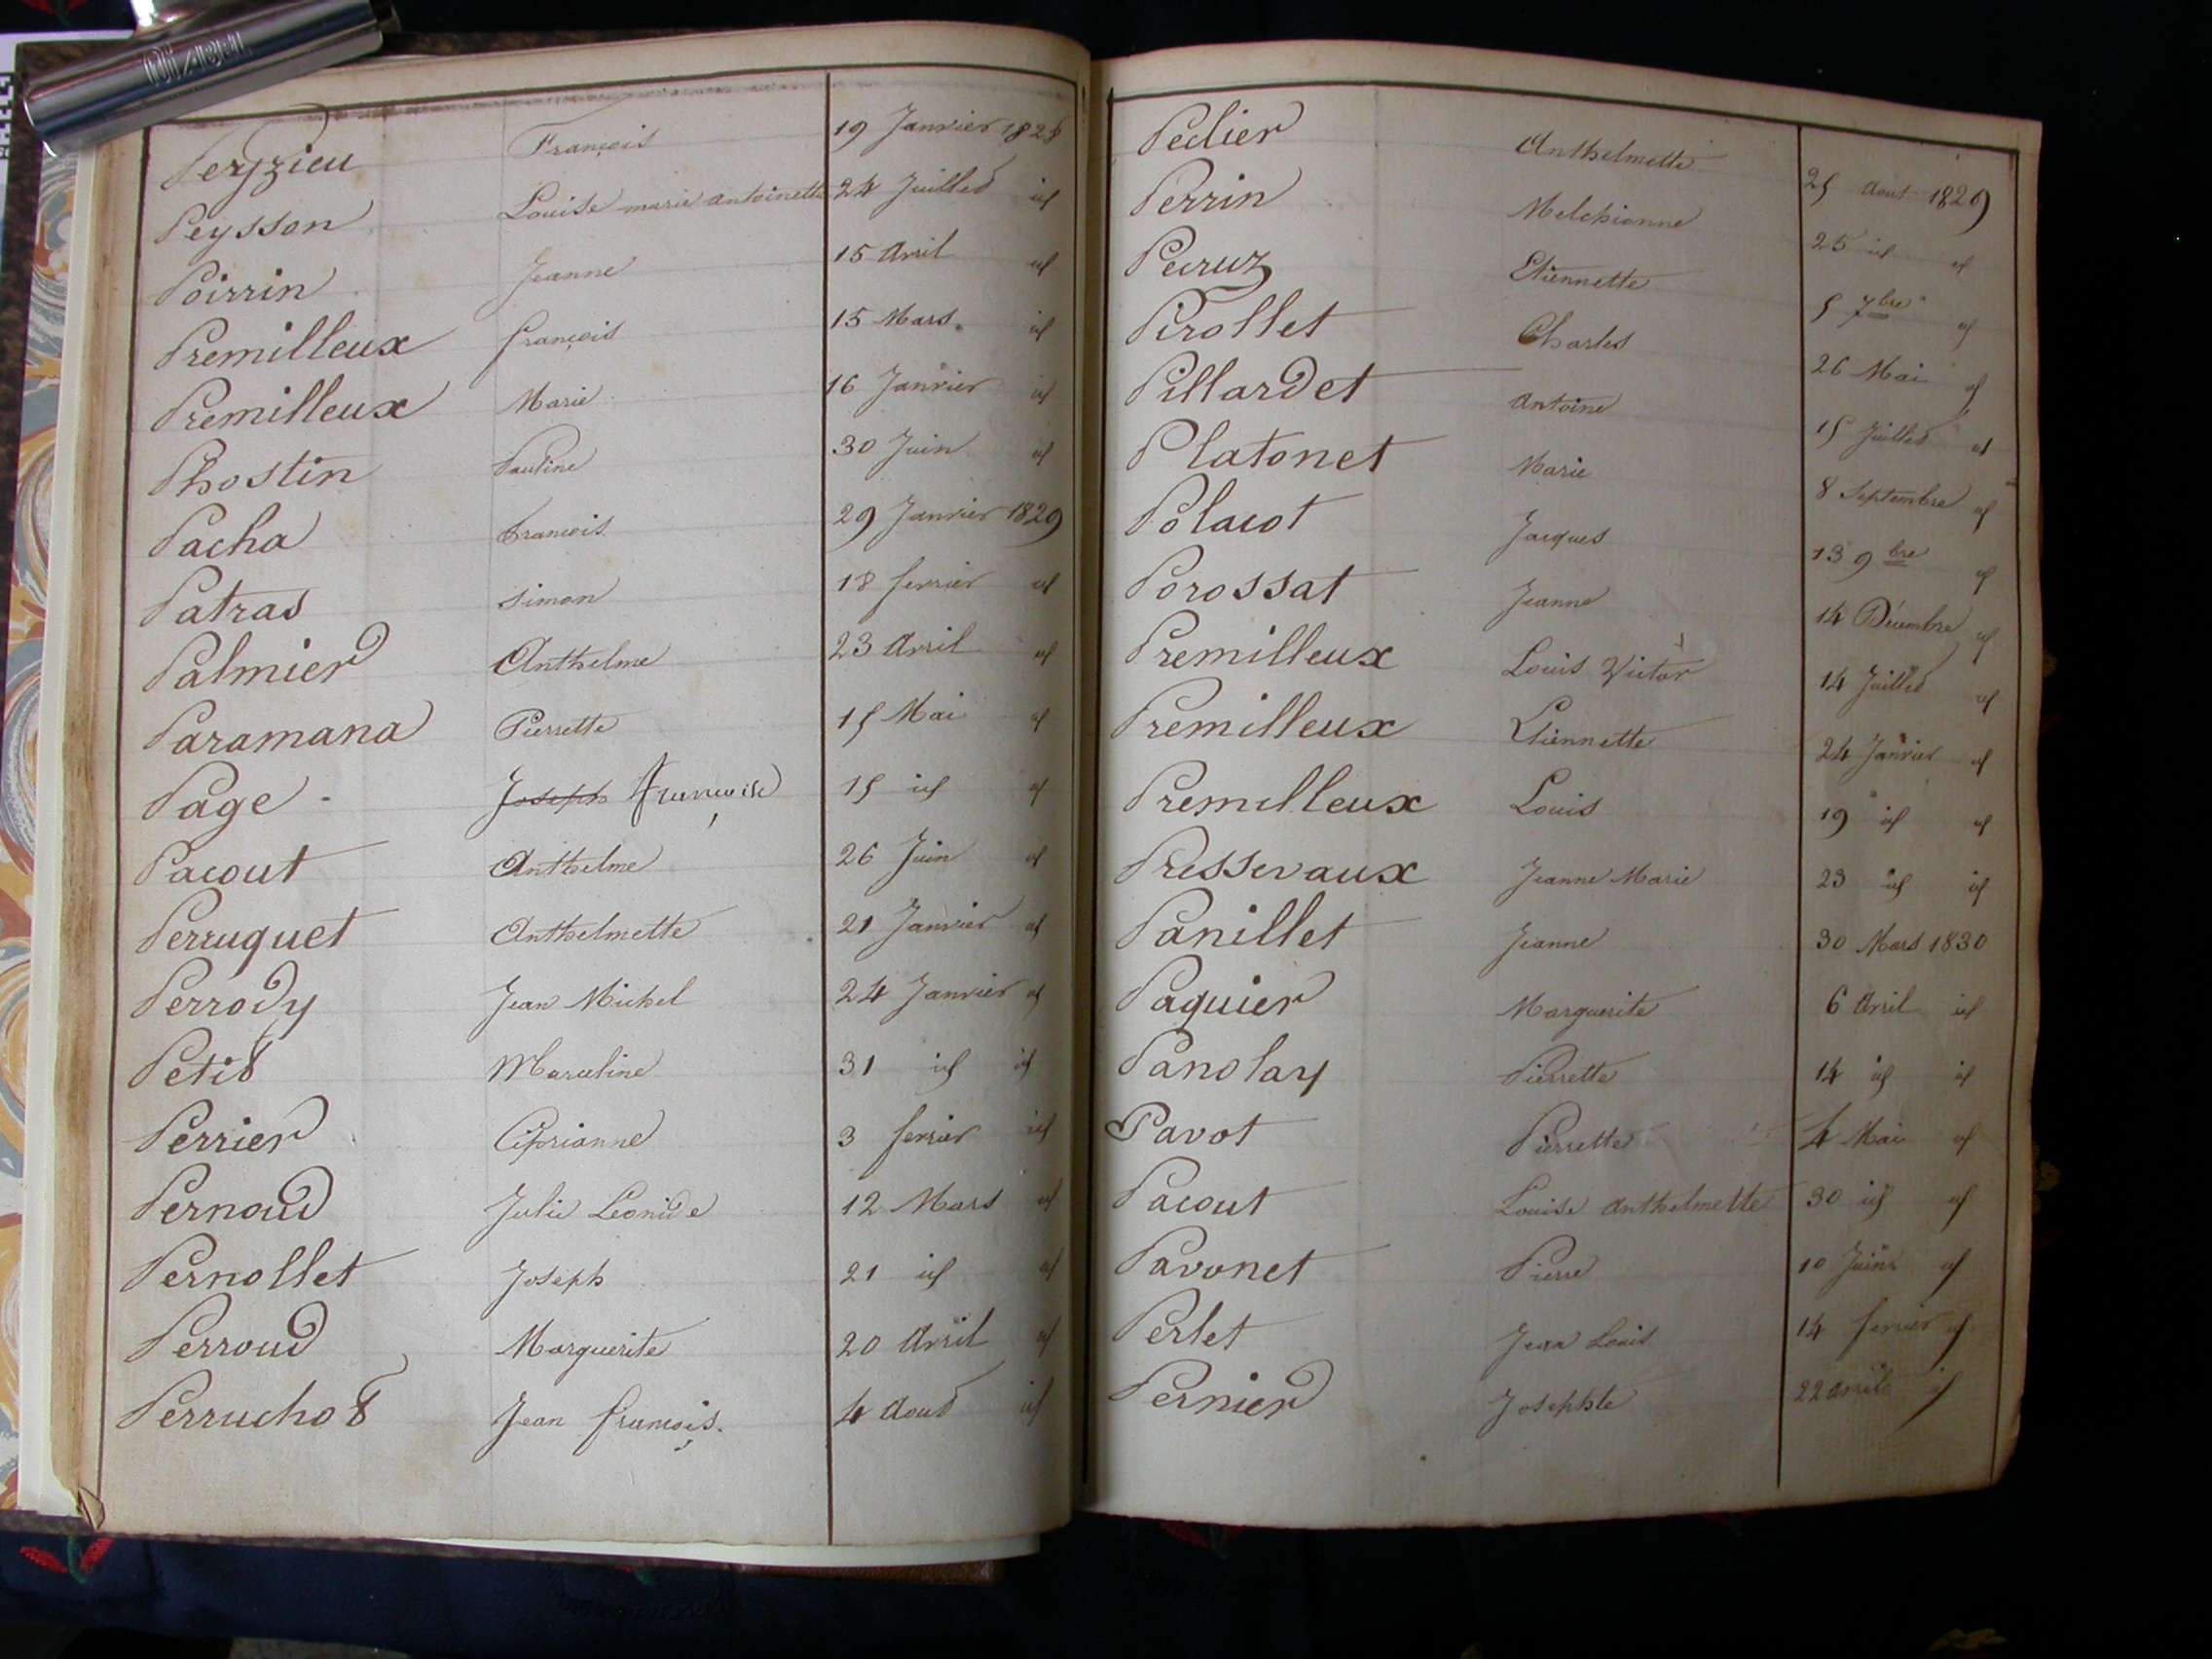 Peyzieu François 19 Janvier 1828
Peysson Louise marie antoinette 24 Juillet id
Poirrin Jeanne 15 Avril id
Premilleux françois 15 Mars. id
Premilleux Marie 16 Janvier id
Phostin Pauline 30 Juin id
Pacha François 29 Janvier 1829
Patras simon 18 fevrier id
Palmier Anthelme 23 Avril id
Paramana Pierrette 15 Mai id
Page Joseph Françoise 15 id id
Pacout Anthelme 26 Juin id
Perruquet Anthelmette 21 Janvier id
Perrody Jean Michel 24 Janvier id
Petit Marceline 31 id id
Perrier Ciprianne 3 fevrier id
Pernoud Julie Leonide 12 Mars id
Pernollet Joseph 21 id id
Perroud Marguerite 20 Avril id
Perruchot Jean françois. 4 Aout id
Peclier Anthelmette 25 Aout 1829
Perrin Melchionne 25 id id
Pecruz Etiennette 5 7bre id
Pirollet Charles 26 Mai id
Pillardet Antoine 15 Juillet id
Platonet Marie 8 Septembre id
Polacot Jacques 13 9bre id
Porossat Jeanne 14 Décembre id
Premilleux Louis Victor 14 Juillet id
Premilleux Etiennette 24 Janvier id
Premilleux Louis 19 id id
Pressevaux Jeanne Marie 23 id id
Panillet Jeanne 30 Mars 1830
Paquier Marguerite 6 Avril id
Panolay Pierrette 14 id id
Pavot Pierrette 4 Mai id
Pacout Louise Anthelmette 30 id id
Pavonet Pierre 10 Juin id
Perlet Jean Louis 14 fevrier id
Pernier Josephte 22 Avril id